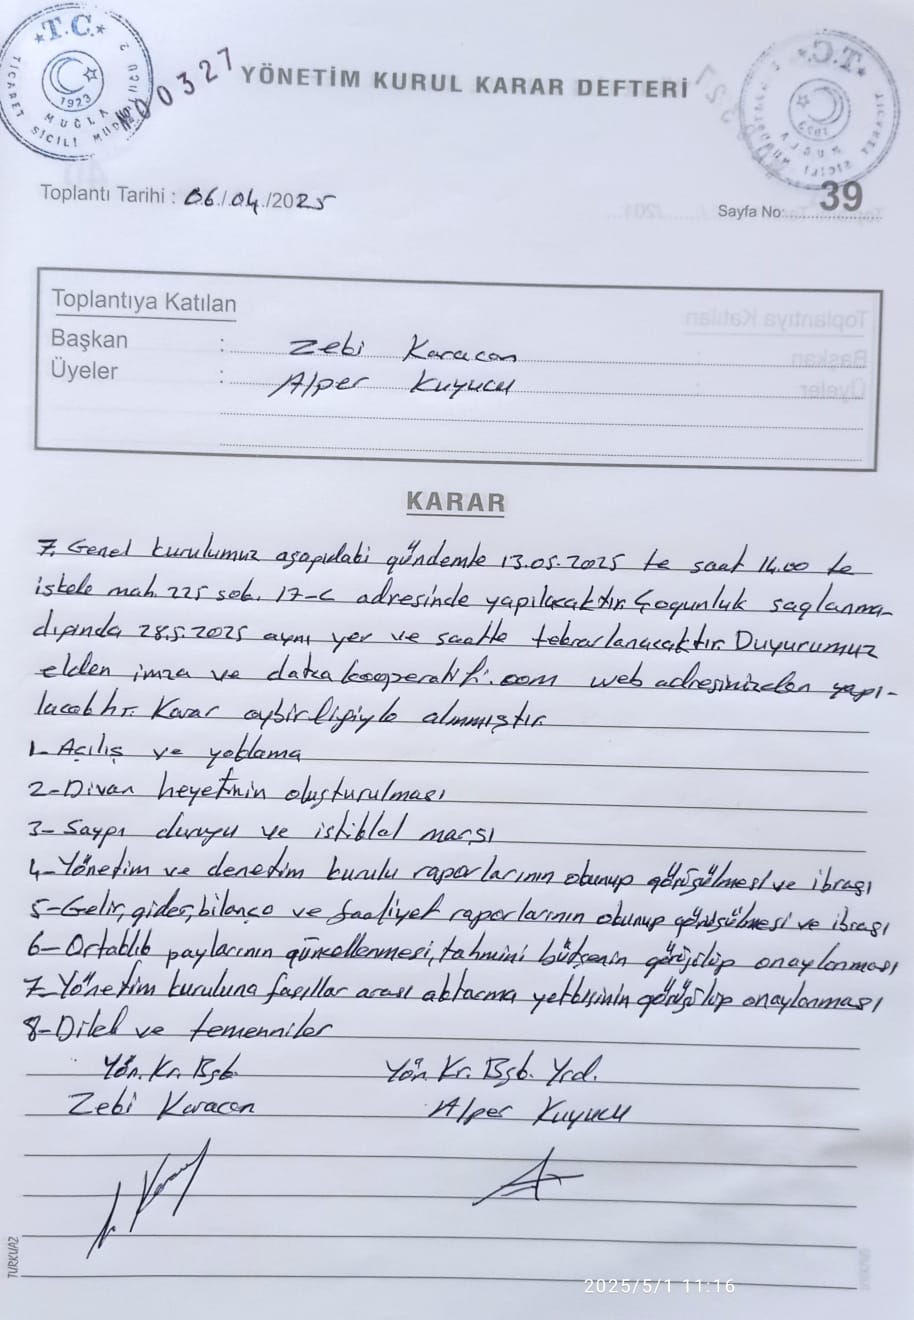 T.C.
1923
MUĞLA
TİCARET SİCİLİ MÜDÜRLÜĞÜ
00327
YÖNETİM KURUL KARAR DEFTERİ
Toplantı Tarihi : 06/04/2025
Sayfa No: 39
Toplantıya Katılan
Başkan : Zeki Karacan
Üyeler : Alper Kuyucu
KARAR
7. Genel kurulumuz aşağıdaki gündemle 13.05.2025 te saat 14.00 te
iskele mah. 225 sok. 17-C adresinde yapılacaktır. Çoğunluk sağlanma-
dığında 28.5.2025 aynı yer ve saatte tekrarlanacaktır. Duyurumuz
elden imza ve datca kooperatifi.com web adresimizden yapı-
lacaktır. Karar oybirliğiyle alınmıştır.
1- Açılış ve yoklama
2- Divan heyetinin oluşturulması
3- Saygı duruşu ve istiklal marşı
4- Yönetim ve denetim kurulu raporlarının okunup görüşülmesi ve ibrası
5- Gelir, gider, bilanço ve faaliyet raporlarının okunup görüşülmesi ve ibrası
6- Ortaklık paylarının güncellenmesi, tahmini bütçenin görüşülüp onaylanması
7- Yönetim kuruluna fasıllar arası aktarma yetkisinin görüşülüp onaylanması
8- Dilek ve temenniler
Yön. Kr. Bşk. Yön. Kr. Bşk. Yrd.
Zeki Karacan Alper Kuyucu
TURKUAZ
2025/5/1 11:16